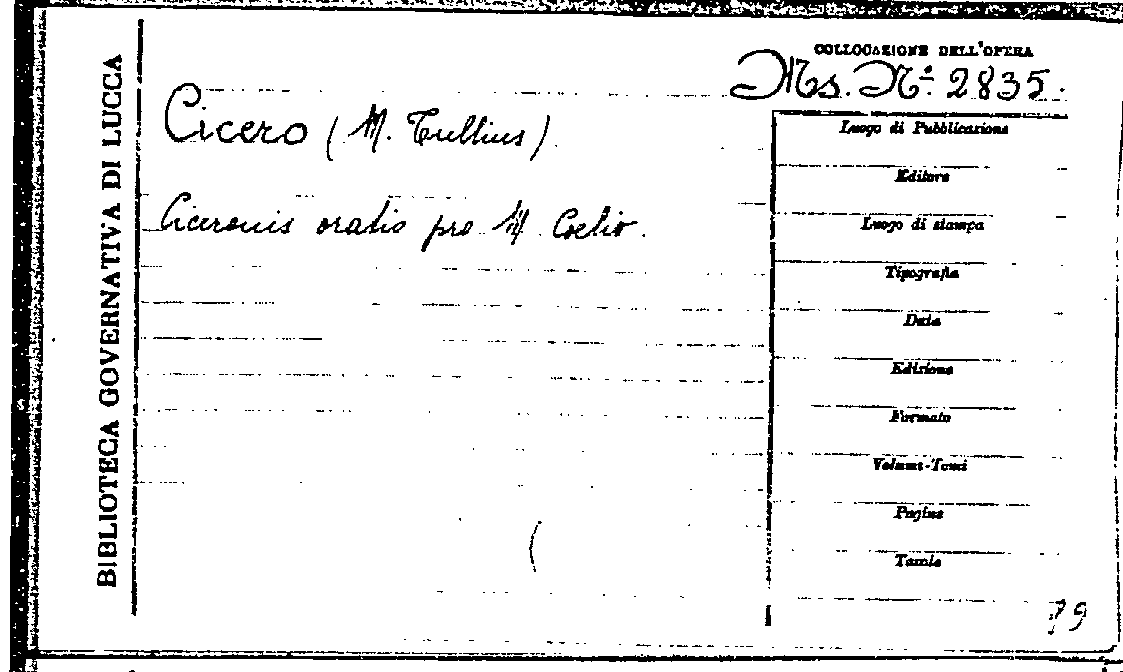 BIBLIOTECA GOVERNATIVA DI LUCCA
COLLOCAZIONE DELL'OPERA
Ms. Nº 2835.
Cicero (M. Tullius)
Ciceronis oratio pro M Coelio.
Luogo di Pubblicazione
Editore
Luogo di stampa
Tipografia
Data
Edizione
Formato
Volumi-Tomi
Pagine
Tavole
79